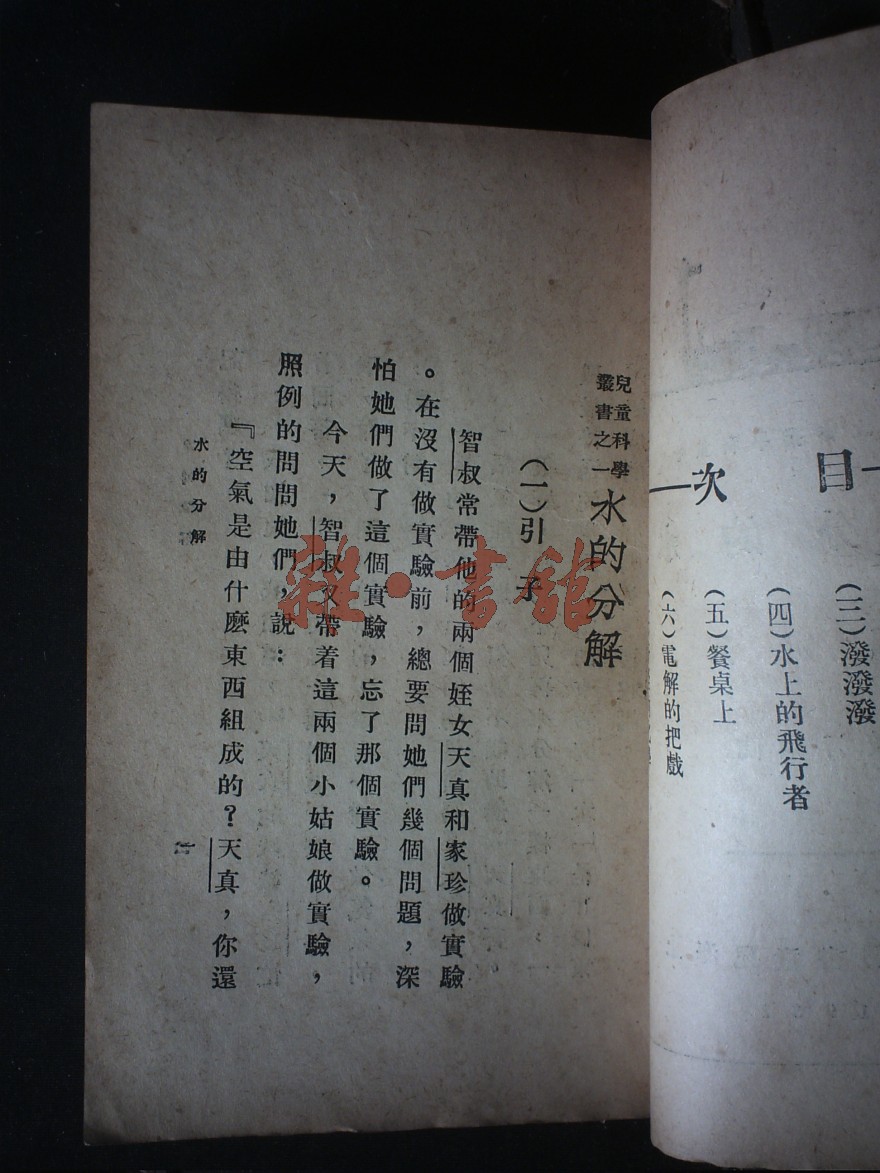 目次
(三)潑潑潑
(四)水上的飛行者
(五)餐桌上
(六)電解的把戲
兒童科學
叢書之一
水的分解
(一)引子
智叔常帶他的兩個姪女天真和家珍做實驗
。在沒有做實驗前，總要問她們幾個問題，深
怕她們做了這個實驗，忘了那個實驗。
今天，智叔又帶着這兩個小姑娘做實驗，
照例的問問她們，說：
『空氣是由什麽東西組成的？天真，你還
水的分解
雜·書館